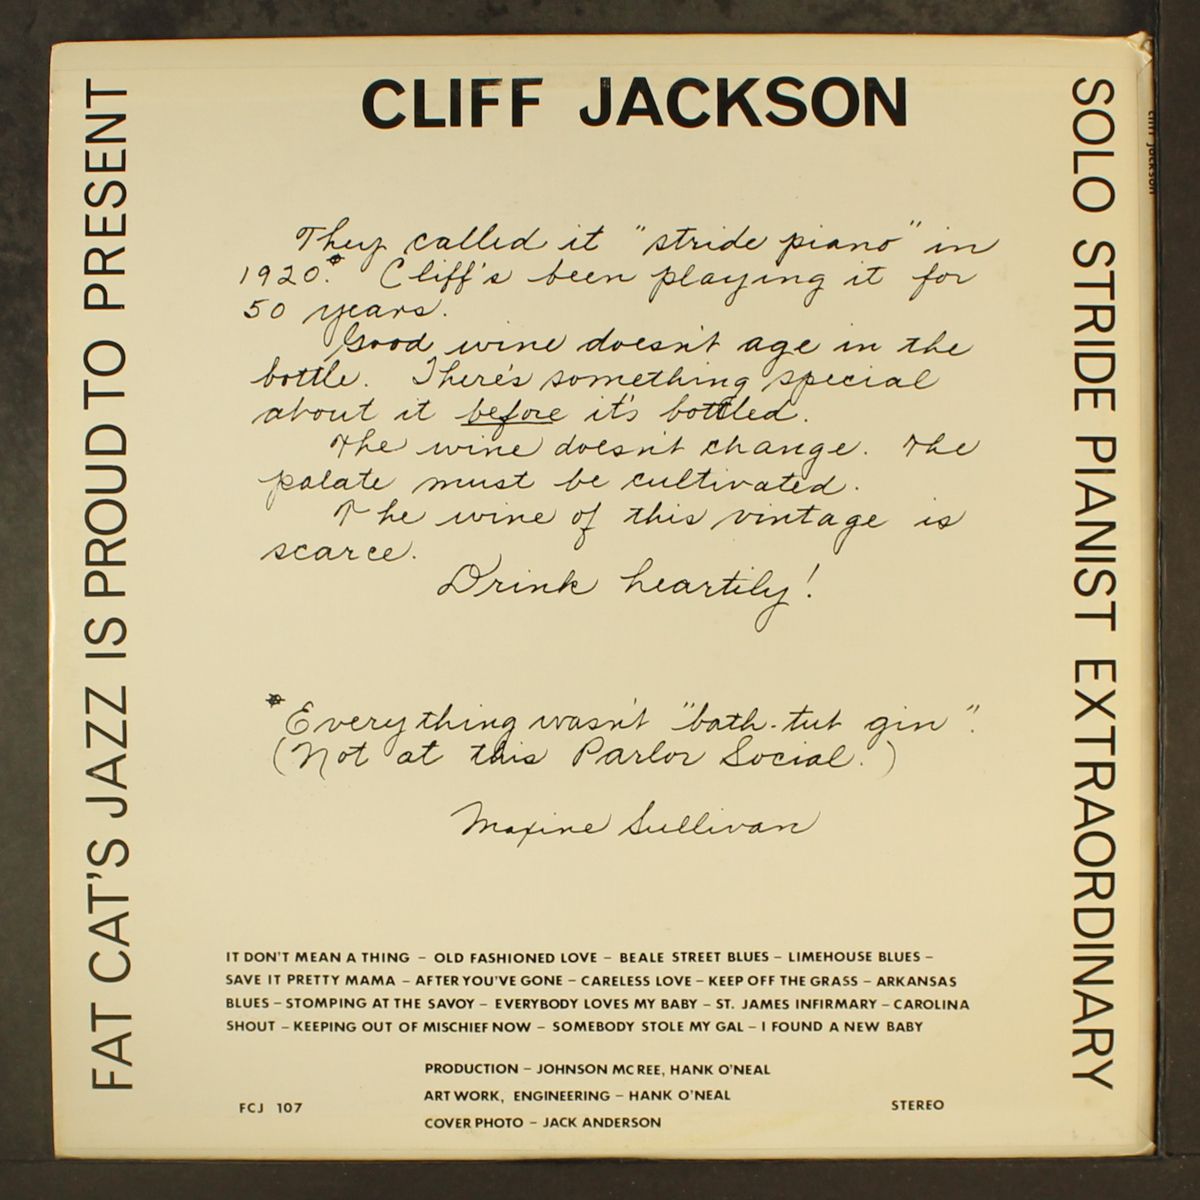 CLIFF JACKSON
FAT CAT'S JAZZ IS PROUD TO PRESENT
SOLO STRIDE PIANIST EXTRAORDINARY
cliff jackson
They called it "stride piano" in
1920.* Cliff's been playing it for
50 years.
Good wine doesn't age in the
bottle. There's something special
about it before it's bottled.
The wine doesn't change. The
palate must be cultivated.
The wine of this vintage is
scarce.
Drink heartily!
*Everything wasn't "bath-tub gin".
(Not at this Parlor Social.)
Maxine Sullivan
IT DON'T MEAN A THING – OLD FASHIONED LOVE – BEALE STREET BLUES – LIMEHOUSE BLUES –
SAVE IT PRETTY MAMA – AFTER YOU'VE GONE – CARELESS LOVE – KEEP OFF THE GRASS – ARKANSAS
BLUES – STOMPING AT THE SAVOY – EVERYBODY LOVES MY BABY – ST. JAMES INFIRMARY – CAROLINA
SHOUT – KEEPING OUT OF MISCHIEF NOW – SOMEBODY STOLE MY GAL – I FOUND A NEW BABY
PRODUCTION – JOHNSON MC REE, HANK O'NEAL
ART WORK, ENGINEERING – HANK O'NEAL
COVER PHOTO – JACK ANDERSON
FCJ 107
STEREO